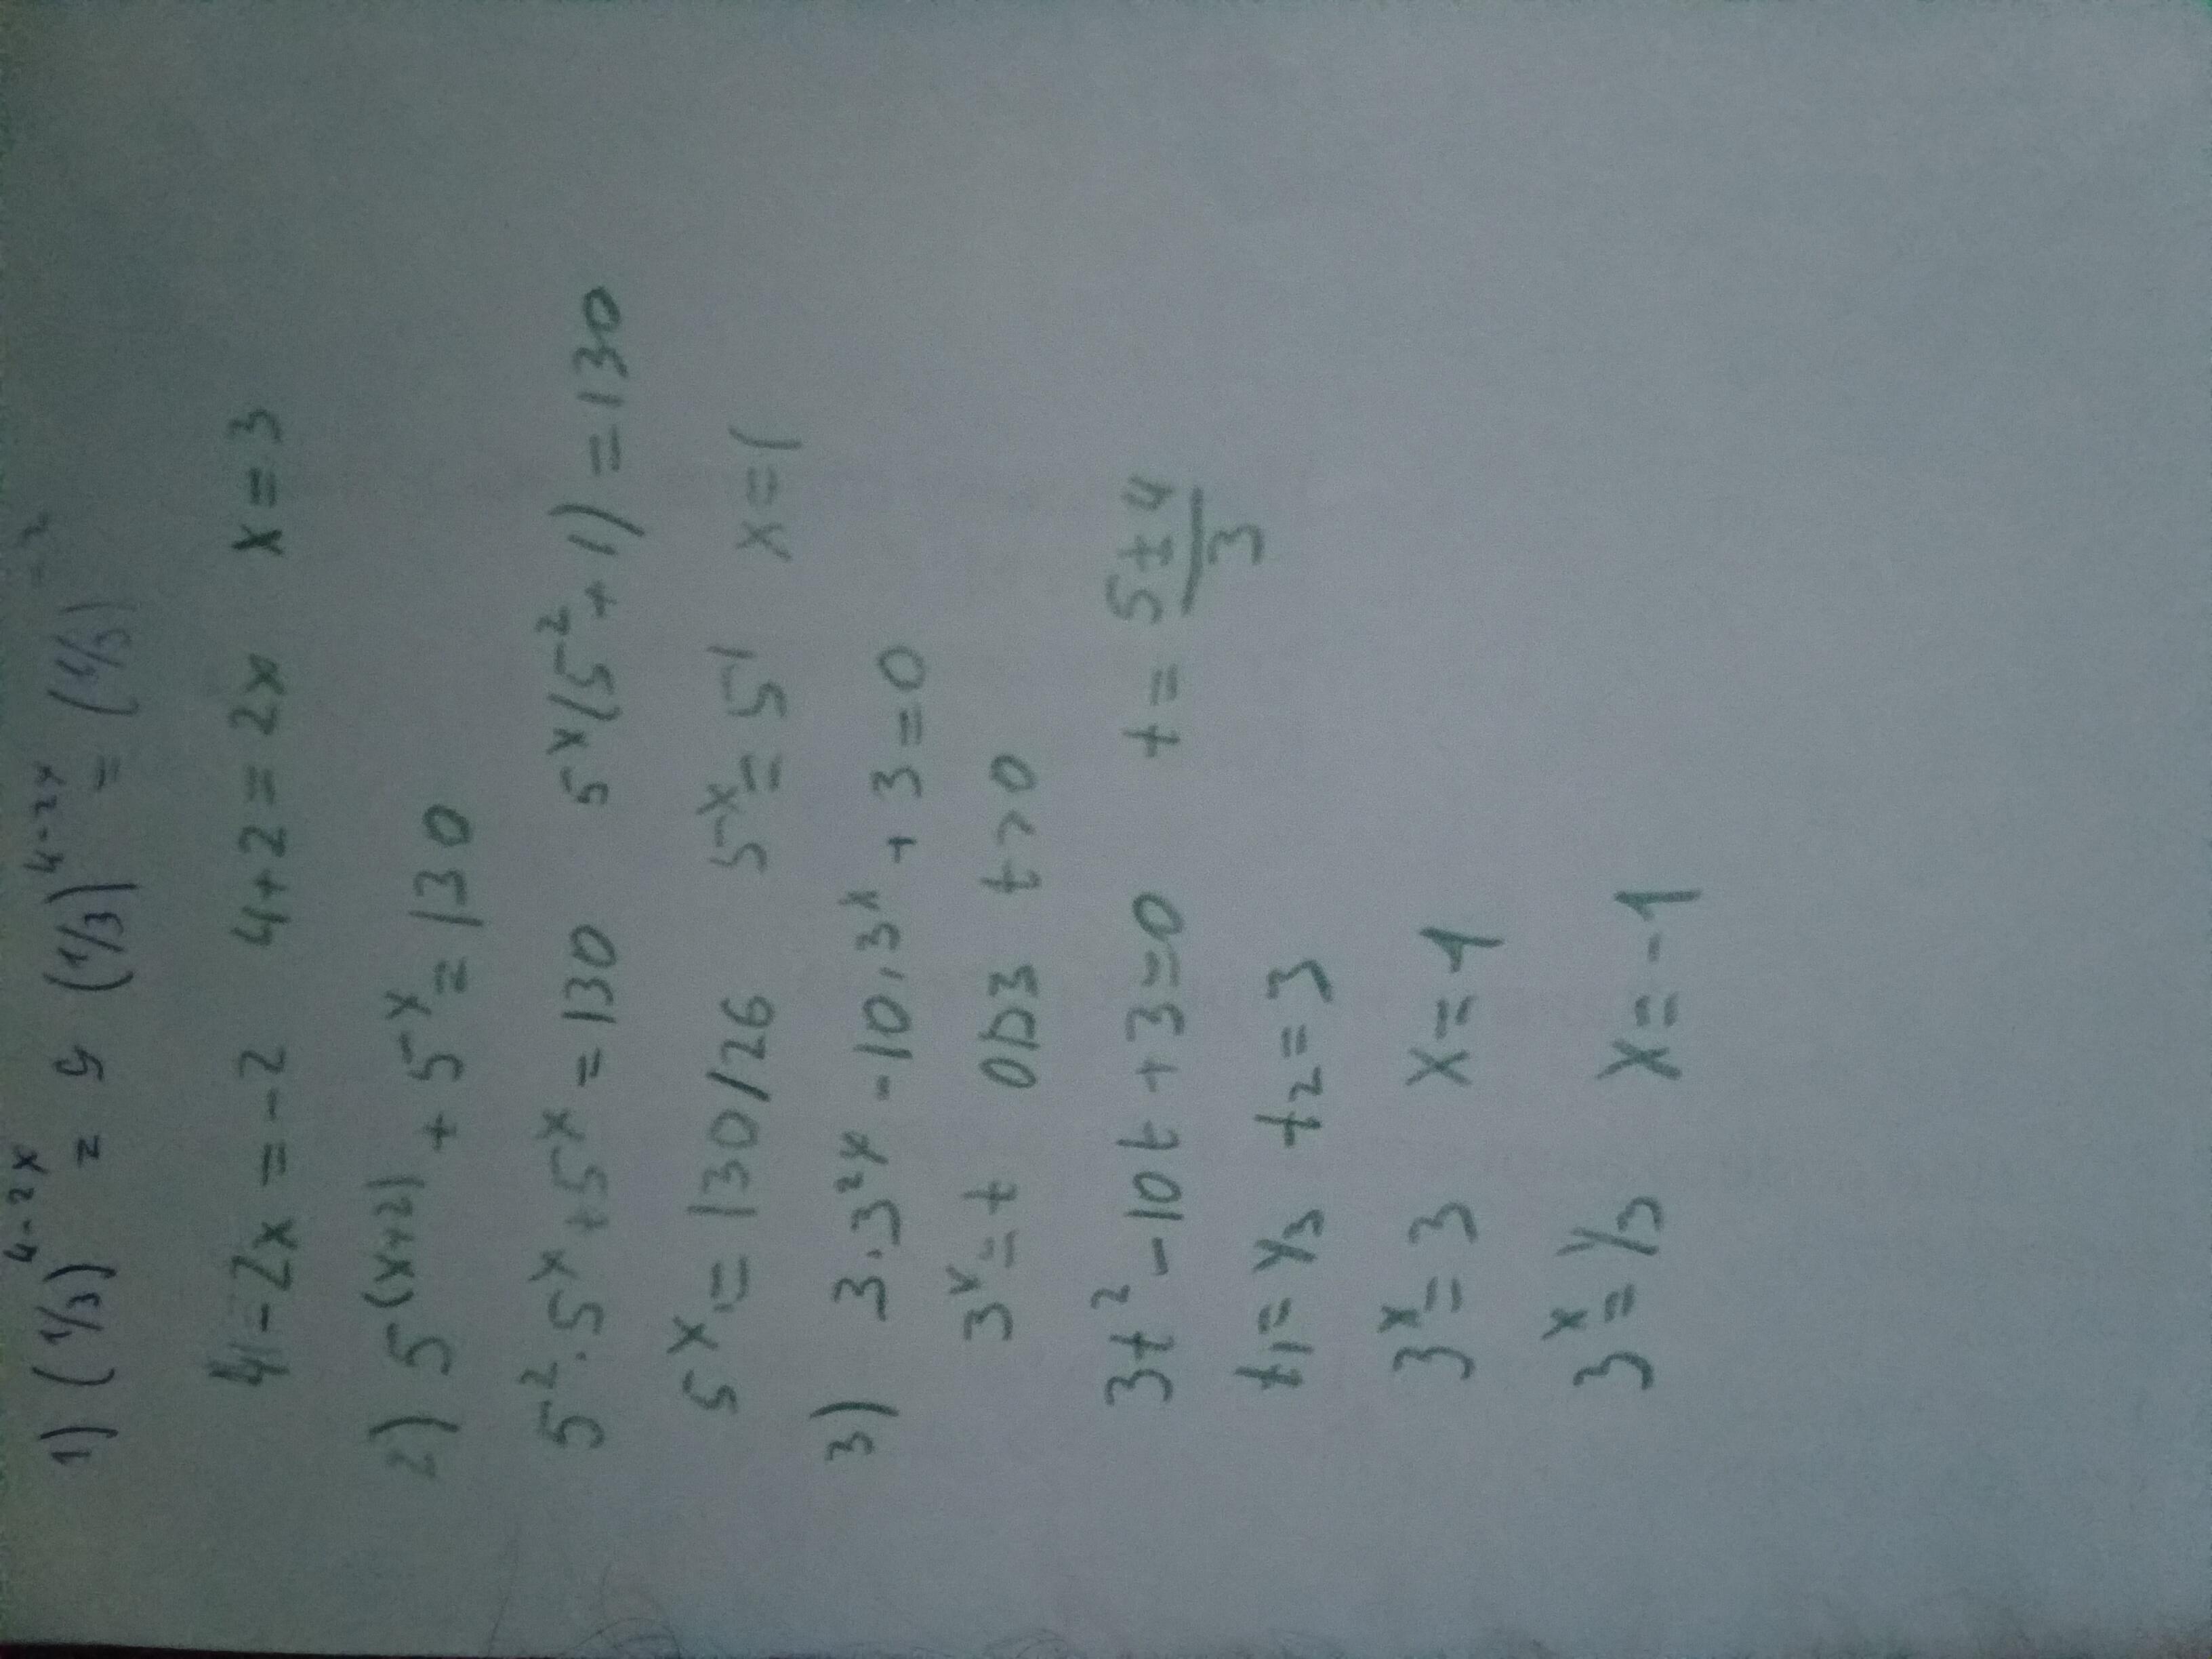 1) (1/3)^4-2x = 9 (1/3)^4-2x = (1/3)^-2
4-2x=-2 4+2=2x x=3
2) 5^(x+2) + 5^x = 130
5^2·5^x+5^x=130 5^x(5^2+1)=130
5^x=130/26 5^x=5^1 x=1
3) 3·3^2x-10·3^x+3=0
3^x=t ОДЗ t>0
3t^2-10t+3=0 t=(5±4)/3
t1=1/3 t2=3
3^x=3 x=1
3^x=1/3 x=-1